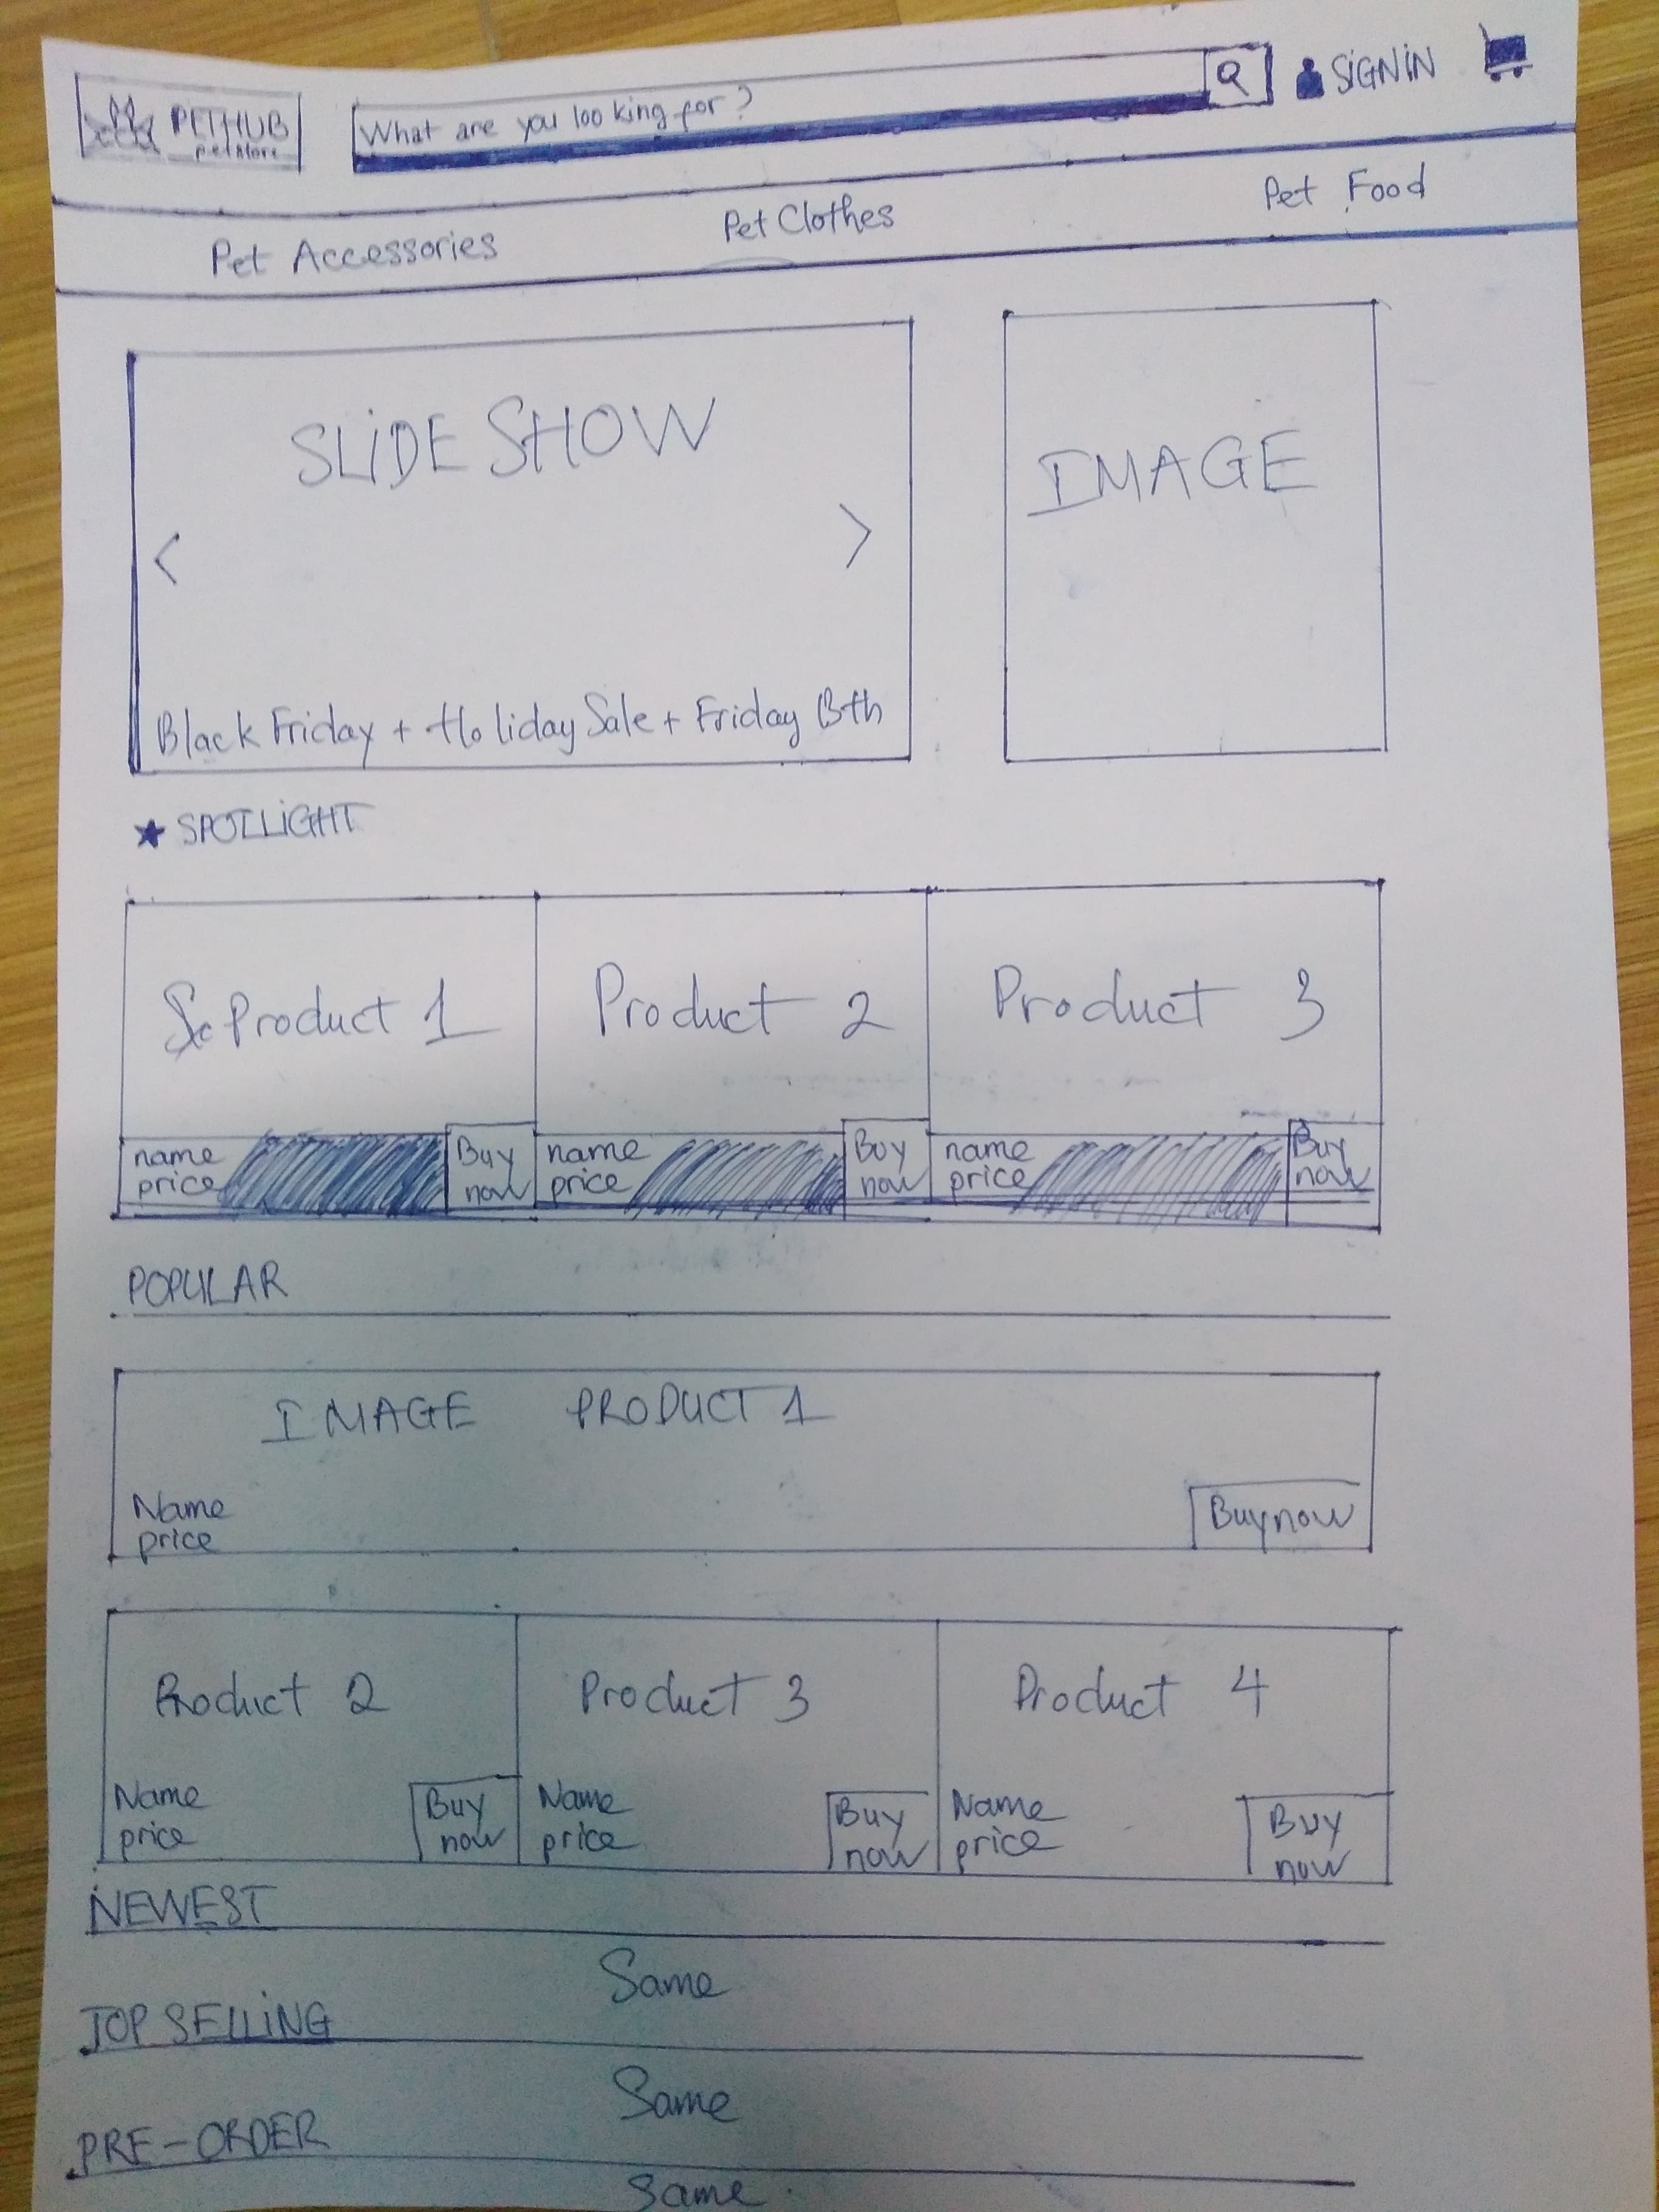 PETHUB
petstore
What are you looking for?
SIGN IN
Pet Accessories
Pet Clothes
Pet Food
SLIDE SHOW
IMAGE
<
>
Black Friday + Holiday Sale + Friday 13th
★ SPOTLIGHT
Product 1
Product 2
Product 3
name
price
Buy
now
name
price
Buy
now
name
price
Buy
now
POPULAR
IMAGE PRODUCT 1
Name
price
Buy now
Product 2
Product 3
Product 4
Name
price
Buy
now
Name
price
Buy
now
Name
price
Buy
now
NEWEST
Same
TOP SELLING
Same
PRE-ORDER
Same